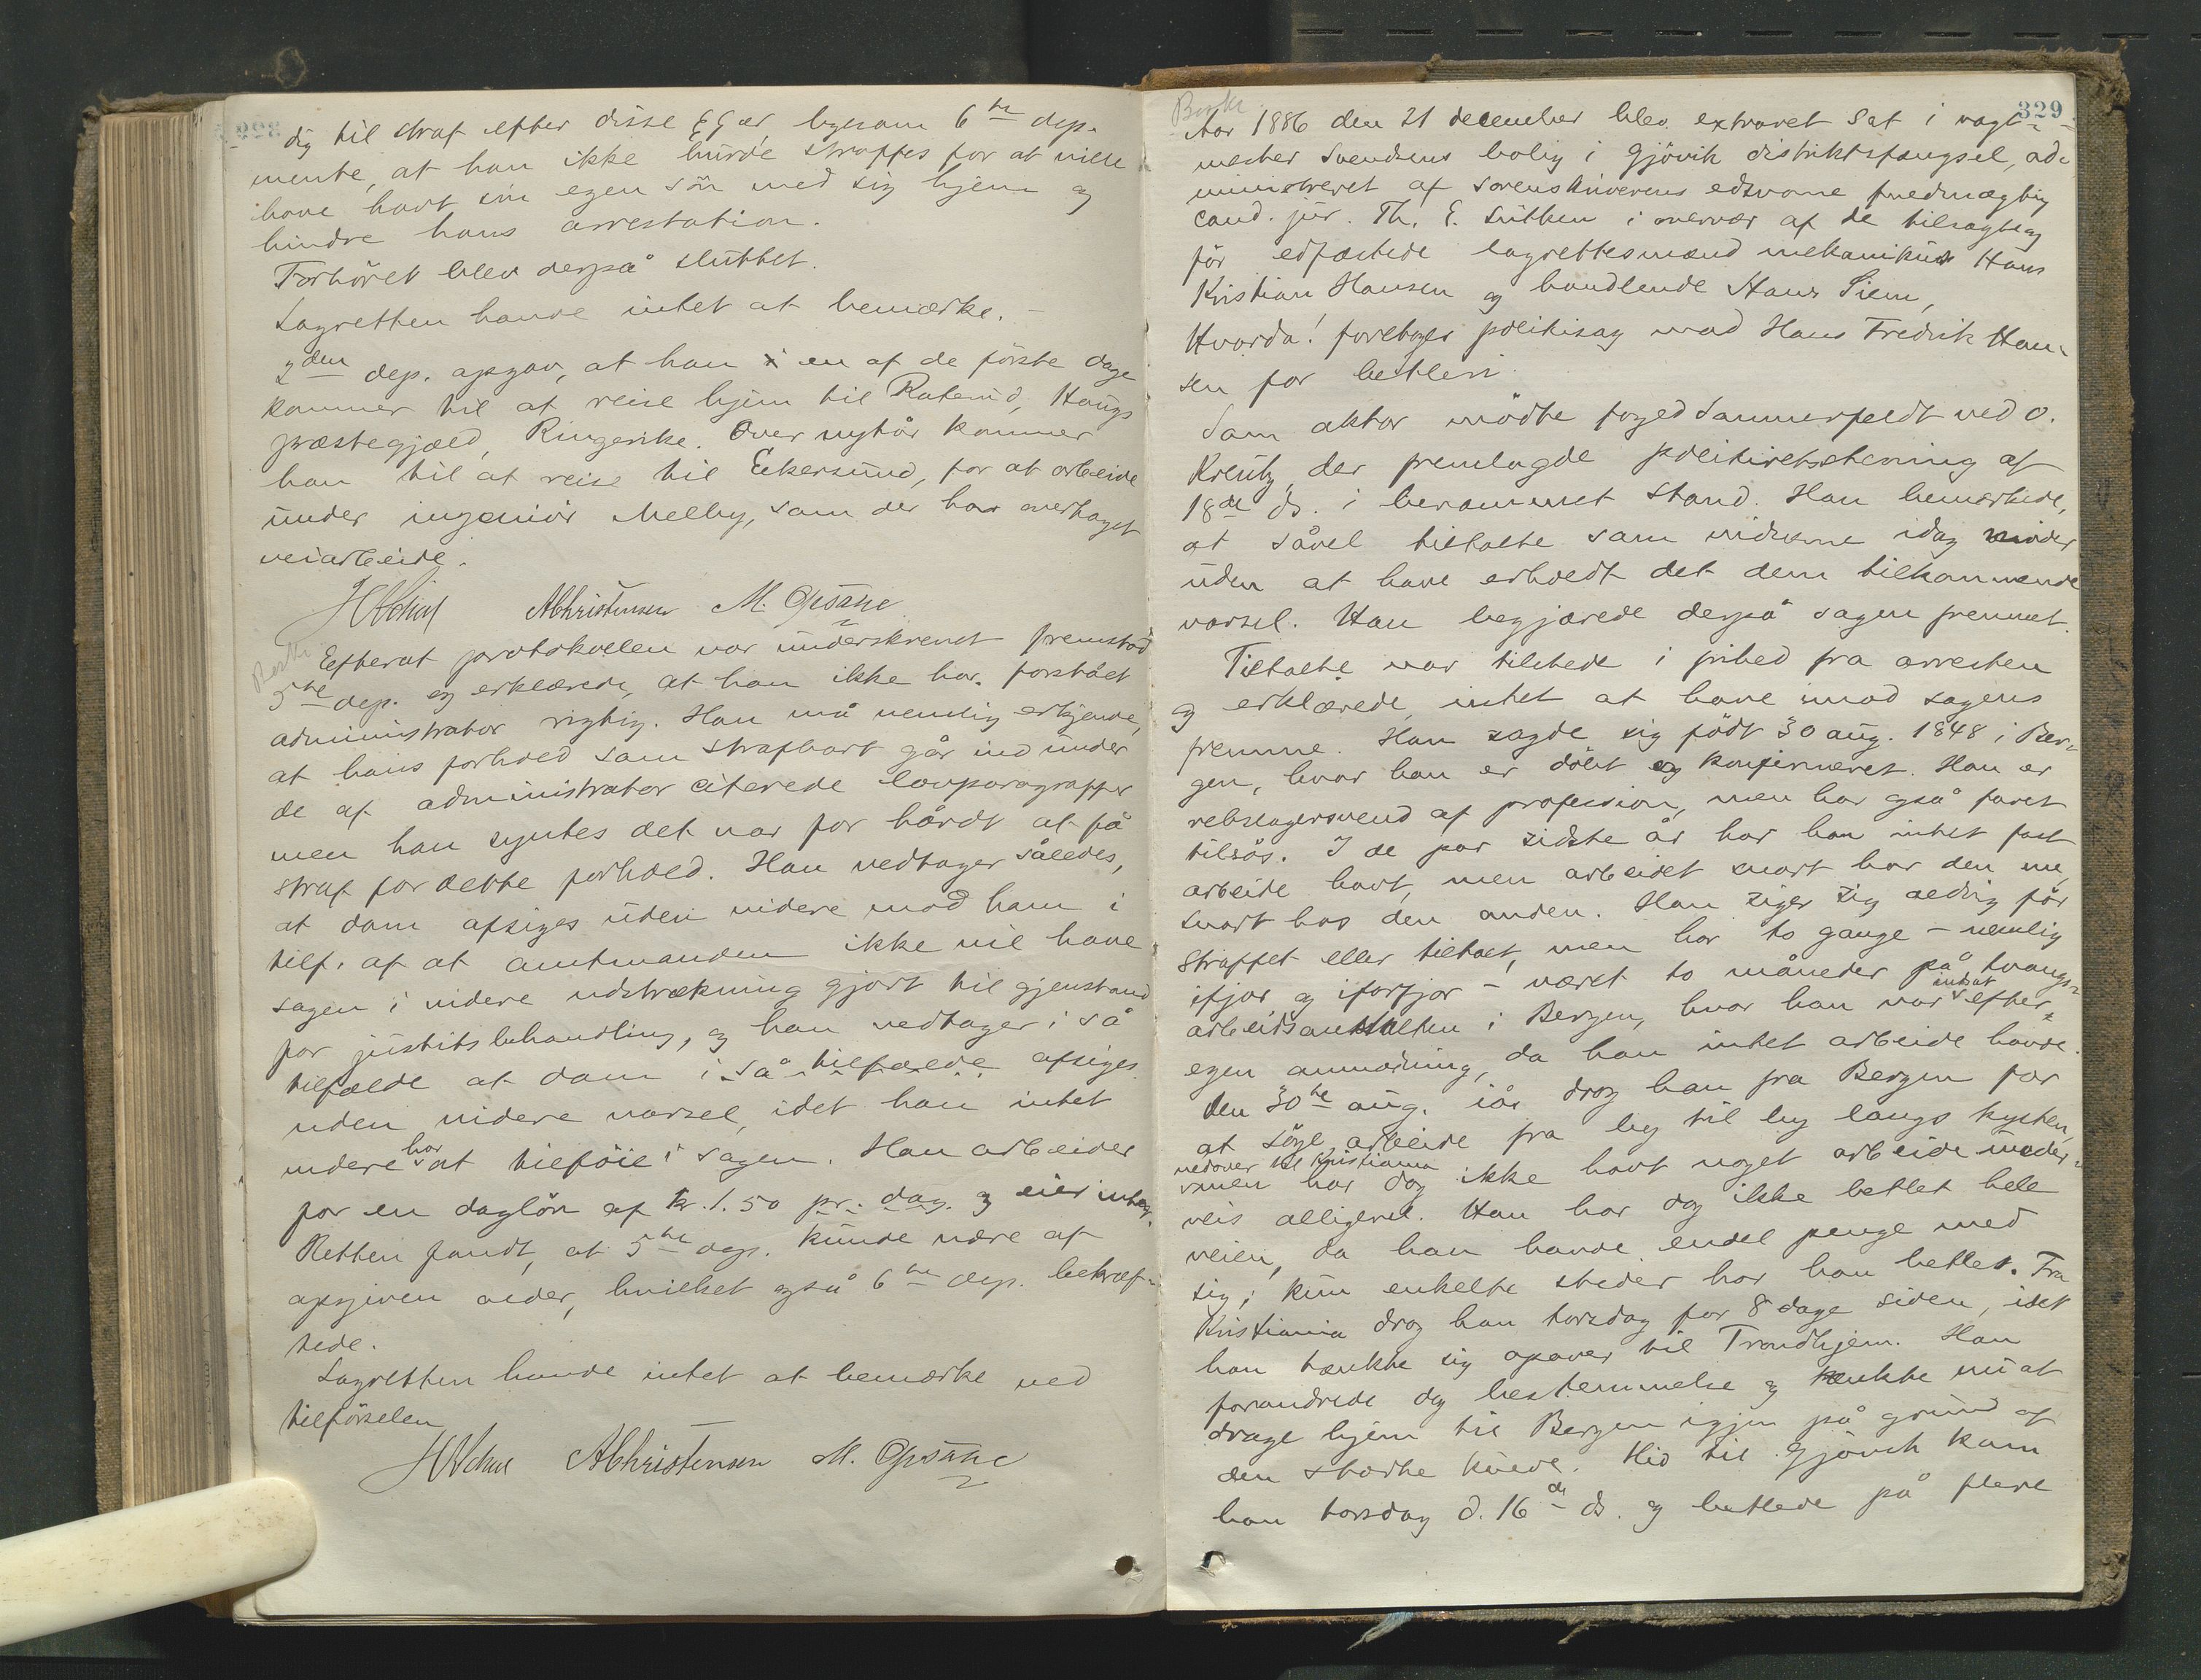 dig til straf efter disse §§er, ligesom 6te dep.
mente, at han ikke burde straffes for at ville
have havt sin egen sön med sig hjem og
hindre hans arrestation.
Forhöret blev derpå sluttet.
Lagretten havde intet at bemærke. –
2den dep. opgav, at han en af de förste dage
kommer til at reise hjem til Raterud, Haugs
præstegjæld, Ringerike. Over nytår kommer
han til at reise til Eekersund, for at arbeide
under ingeniör Melby, som der har overtaget
veiarbeide.
AChristensen M. Opsahl
Efterat protokollen var underskrevet fremstod
5te dep. og erklærede, at han ikke har forstået
administrator rigtig. Han må nemlig erkjende,
at hans forhold som strafbart går ind under
de af administrator citerede lovparagrapher
men han syntes det var for hårdt at få
straf for dette forhold. Han vedtager således,
at dom afsiges uden videre mod ham i
tilf. af at amtmanden ikke vil have
sagen i videre udstrækning gjort til gjenstand
for justitsbehandling, og han vedtager i så
tilfælde at dom i så tilfælde afsiges
uden videre varsel, idet han intet
videre har at tilföie i sagen. Han arbeider
for en daglön af kr. 1.50 pr. dag. og eier intet.
Retten fandt, at 5te dep. kunde være af
opgiven alder, hvilket også 6te dep. bekræf-
tede.
Lagretten havde intet at bemærke ved
tilförselen
AChristensen M. Opsahl
329
Aar 1886 den 21 december blev extraret sat i vagt-
mester Svendsens bolig i Gjövik distriktsfængsel, ad-
ministreret af sorenskriverens edsvorne fuldmægtig
cand. jur. Th. E. Lütken i overvær af de tilsagte og
för edfæstede lagrettesmænd mekanikus Hans
Kristian Hansen og handlende Hans Siem,
Hvorda! foretoges politisag mod Hans Fredrik Han-
sen for betleri.
Som aktor mödte foged Sommerfeldt ved O.
Kreutz, der fremlagde politiretsstevning af
18de ds. i berammet stand. Han bemærkede,
at såvel tiltalte som vidnerne idag möder
uden at have erholdt det dem tilkommende
varsel. Han begjærede derpå sagen fremmet.
Tiltalte var tilstede i frihed fra arresten
og erklærede intet at have imod sagens
fremme. Han sagde sig födt 30 aug. 1848 i Ber-
gen, hvor han er döbt og konfirmeret. Han er
rebslagersvend af profession, men har også faret
tilsös. I de par sidste år har han intet fast
arbeide havt, men arbeidet snart hos den ene,
snart hos den anden. Han siger sig aldrig för
straffet eller tiltalt, men har to gange – nemlig
ifjor og iforfjor – været to måneder på tvangs-
arbeidsanstalten i Bergen, hvor han var indsat efter
egen anmodning, da han intet arbeide havde.
Den 30te aug. iår drog han fra Bergen for
at söge arbeide fra by til by langs kysten,
nedover til Kristiania
men har dog ikke havt noget arbeide under-
veis alligevel. Han har dog ikke betlet hele
veien, da han havde endel penge med
sig; kun enkelte steder har han betlet. Fra
Kristiania drog han torsdag for 8 dage siden, idet
han tænkte sig opover til Trondhjem. Han
forandrede dog bestemmelse og tænkte nu at
drage hjem til Bergen igjen på grund af
den stærke kulde. Hid til Gjövik kom
han torsdag d. 16de ds. og betlede på flere